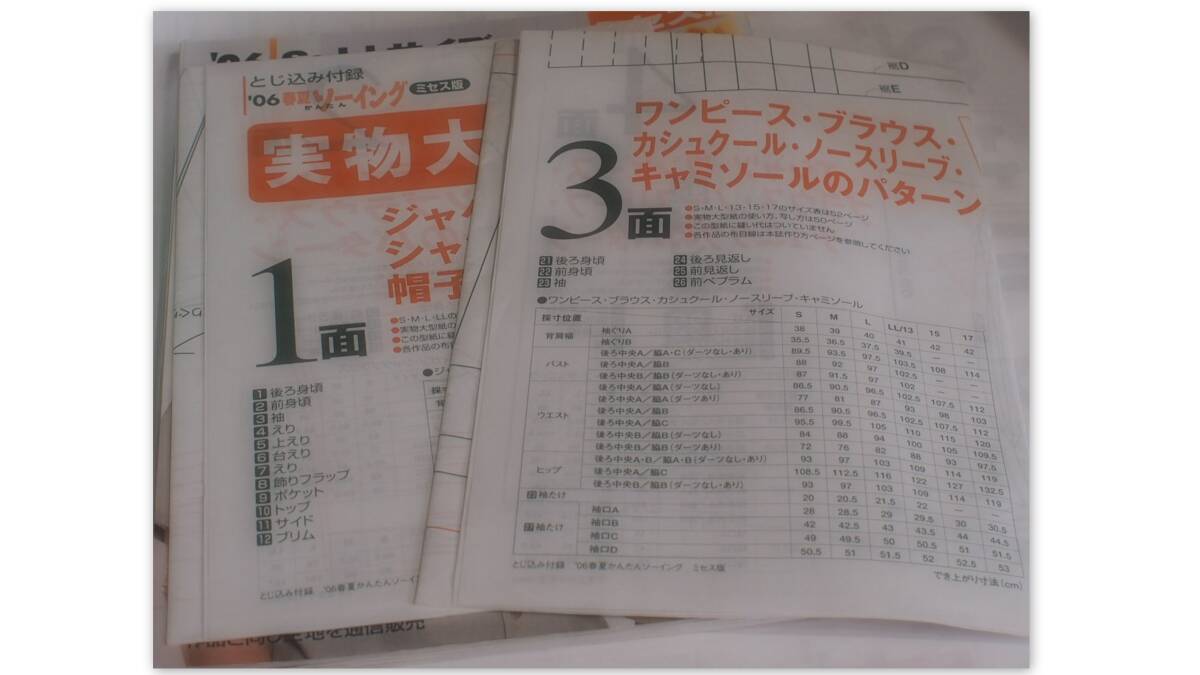 とじ込み付録
'06 春夏 かんたん ソーイング ミセス版
実物大
1面
●S・M・L・LLの
●実物大型紙の
●この型紙に縫
●各作品の布目
1 後ろ身頃
2 前身頃
3 袖
4 えり
5 上えり
6 台えり
7 えり
8 飾りフラップ
9 ポケット
10 トップ
11 サイド
12 ブリム
とじ込み付録 '06春夏かんたんソーイン
紙D
紙E
ワンピース・ブラウス・
カシュクール・ノースリーブ・
キャミソールのパターン
3面
●S・M・L・13・15・17のサイズ表は52ページ
●実物大型紙の使い方、写し方は50ページ
●この型紙に縫い代はついていません
●各作品の布目線は本誌作り方ページを参照してください
21 後ろ身頃
22 前身頃
23 袖
24 後ろ見返し
25 前見返し
26 前ペプラム
●ワンピース・ブラウス・カシュクール・ノースリーブ・キャミソール
採寸位置 サイズ S M L LL/13 15 17
背肩幅 袖ぐりA 38 39 40 41 42 42
袖ぐりB 35.5 36.5 37.5 39.5 — —
バスト 後ろ中央A/脇A・C(ダーツなし・あり) 89.5 93.5 97.5 103.5 108 114
後ろ中央A/脇B 88 92 97 102.5 — —
後ろ中央B/脇B(ダーツなし・あり) 87 91.5 97 102 — —
ウエスト 後ろ中央A/脇A(ダーツなし) 86.5 90.5 96.5 102.5 107.5 112
後ろ中央A/脇A(ダーツあり) 77 81 87 93 98 103
後ろ中央A/脇B 86.5 90.5 96.5 102.5 107.5 112
後ろ中央A/脇C 95.5 99.5 105 110 115 120
後ろ中央B/脇B(ダーツなし) 84 88 94 100 105 109.5
後ろ中央B/脇B(ダーツあり) 72 76 82 88 93 97.5
ヒップ 後ろ中央A・B/脇A・B(ダーツなし・あり) 93 97 103 109 114 119
後ろ中央A/脇C 108.5 112.5 116 122 127 132.5
後ろ中央B/脇B(ダーツなし・あり) 93 97 103 109 114 119
袖たけ 20 20.5 21.5 22 — —
袖たけ 袖口A 28 28.5 29 29.5 30 30.5
袖口B 42 42.5 43 43.5 44 44.5
袖口C 49 49.5 50 50.5 51 51.5
袖口D 50.5 51 51.5 52 52.5 53
とじ込み付録 '06春夏かんたんソーイング ミセス版
でき上がり寸法(cm)